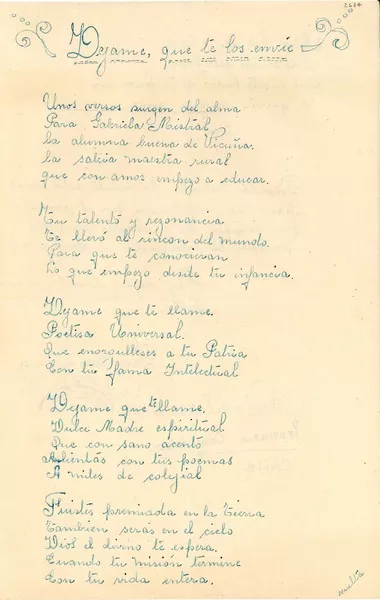 2624
Dejame, que te los envie
Unos versos surgen del alma
Para Gabriela Mistral
La alumna buena de Vicuña.
La sabia maestra rural
que con amor empezo a educar.
Tu talento y rezonancia
Te llevó al rincon del mundo.
Para que te conocieran
Lo que empezo desde tu infancia.
Dejame que te llame.
Poetisa Universal.
Que enorgulleses a tu Patria
Con tu fama Intelectual
Dejame que te llame,
Dulce Madre espiritual
Que con sano acento
Alientás con tus poemas
A miles de colegial
Fuistes premiada en la Tierra
Tambien serás en el cielo
Dios el divino te espera.
Cuando tu misión termine
Con tu vida entera.
vuelta